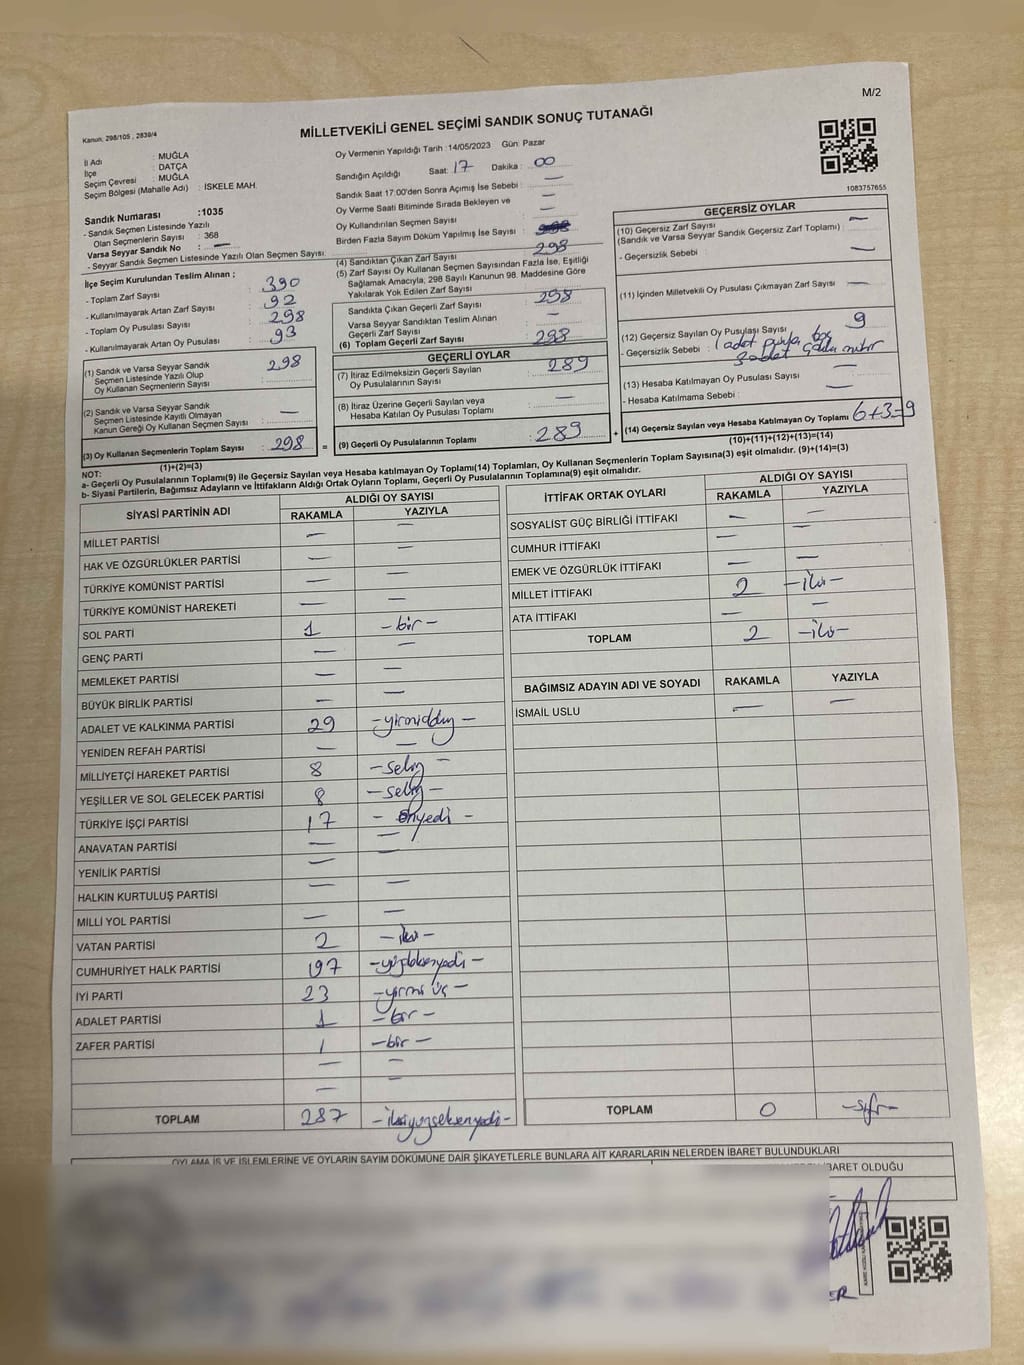 M/2
Kanun: 298/105 , 2839/4
MİLLETVEKİLİ GENEL SEÇİMİ SANDIK SONUÇ TUTANAĞI
İl Adı : MUĞLA
İlçe : DATÇA
Seçim Çevresi : MUĞLA
Seçim Bölgesi (Mahalle Adı) : İSKELE MAH.
Sandık Numarası : 1035
- Sandık Seçmen Listesinde Yazılı
Olan Seçmenlerin Sayısı : 368
Varsa Seyyar Sandık No : —
- Seyyar Sandık Seçmen Listesinde Yazılı Olan Seçmen Sayısı:
Oy Vermenin Yapıldığı Tarih : 14/05/2023 Gün: Pazar
Sandığın Açıldığı Saat: 17 Dakika : 00
Sandık Saat 17:00'den Sonra Açımış İse Sebebi : —
Oy Verme Saati Bitiminde Sırada Bekleyen ve
Oy Kullandırılan Seçmen Sayısı : —
Birden Fazla Sayım Döküm Yapılmış İse Sayısı :
1083757655
İlçe Seçim Kurulundan Teslim Alınan ;
- Toplam Zarf Sayısı : 390
- Kullanılmayarak Artan Zarf Sayısı : 92
- Toplam Oy Pusulası Sayısı : 298
- Kullanılmayarak Artan Oy Pusulası : 93
(1) Sandık ve Varsa Seyyar Sandık
Seçmen Listesinde Yazılı Olup
Oy Kullanan Seçmenlerin Sayısı : 298
(2) Sandık ve Varsa Seyyar Sandık
Seçmen Listesinde Kayıtlı Olmayan
Kanun Gereği Oy Kullanan Seçmen Sayısı : —
(3) Oy Kullanan Seçmenlerin Toplam Sayısı : 298
(1)+(2)=(3)
(4) Sandıktan Çıkan Zarf Sayısı : 298
(5) Zarf Sayısı Oy Kullanan Seçmen Sayısından Fazla İse, Eşitliği
Sağlamak Amacıyla, 298 Sayılı Kanunun 98. Maddesine Göre
Yakılarak Yok Edilen Zarf Sayısı :
Sandıkta Çıkan Geçerli Zarf Sayısı : 298
Varsa Seyyar Sandıktan Teslim Alınan
Geçerli Zarf Sayısı : —
(6) Toplam Geçerli Zarf Sayısı : 298
GEÇERLİ OYLAR
(7) İtiraz Edilmeksizin Geçerli Sayılan
Oy Pusulalarının Sayısı : 289
(8) İtiraz Üzerine Geçerli Sayılan veya
Hesaba Katılan Oy Pusulası Toplamı : —
= (9) Geçerli Oy Pusulalarının Toplamı : 289
GEÇERSİZ OYLAR
(10) Geçersiz Zarf Sayısı : —
(Sandık ve Varsa Seyyar Sandık Geçersiz Zarf Toplamı)
- Geçersizlik Sebebi : —
(11) İçinden Milletvekili Oy Pusulası Çıkmayan Zarf Sayısı : —
(12) Geçersiz Sayılan Oy Pusulası Sayısı : 9
- Geçersizlik Sebebi : 1 adet boş
3 adet
(13) Hesaba Katılmayan Oy Pusulası Sayısı : —
- Hesaba Katılmama Sebebi : —
+ (14) Geçersiz Sayılan veya Hesaba Katılmayan Oy Toplamı 6+3=9
(10)+(11)+(12)+(13)=(14)
NOT:
a- Geçerli Oy Pusulalarının Toplamı(9) ile Geçersiz Sayılan veya Hesaba katılmayan Oy Toplamı(14) Toplamları, Oy Kullanan Seçmenlerin Toplam Sayısına(3) eşit olmalıdır. (9)+(14)=(3)
b- Siyasi Partilerin, Bağımsız Adayların ve İttifakların Aldığı Ortak Oyların Toplamı, Geçerli Oy Pusulalarının Toplamına(9) eşit olmalıdır.
SİYASİ PARTİNİN ADI ALDIĞI OY SAYISI
RAKAMLA YAZIYLA
MİLLET PARTİSİ — —
HAK VE ÖZGÜRLÜKLER PARTİSİ — —
TÜRKİYE KOMÜNİST PARTİSİ — —
TÜRKİYE KOMÜNİST HAREKETİ — —
SOL PARTİ 1 -bir-
GENÇ PARTİ — —
MEMLEKET PARTİSİ — —
BÜYÜK BİRLİK PARTİSİ — —
ADALET VE KALKINMA PARTİSİ 29 -yirmidokuz-
YENİDEN REFAH PARTİSİ — —
MİLLİYETÇİ HAREKET PARTİSİ 8 -sekiz-
YEŞİLLER VE SOL GELECEK PARTİSİ 8 -sekiz-
TÜRKİYE İŞÇİ PARTİSİ 17 -onyedi-
ANAVATAN PARTİSİ — —
YENİLİK PARTİSİ — —
HALKIN KURTULUŞ PARTİSİ — —
MİLLİ YOL PARTİSİ — —
VATAN PARTİSİ 2 -iki-
CUMHURİYET HALK PARTİSİ 197 -yüzdoksanyedi-
İYİ PARTİ 23 -yirmi üç-
ADALET PARTİSİ 1 -bir-
ZAFER PARTİSİ 1 -bir-
— —
— —
TOPLAM 287 -ikiyüzseksenyedi-
İTTİFAK ORTAK OYLARI ALDIĞI OY SAYISI
RAKAMLA YAZIYLA
SOSYALİST GÜÇ BİRLİĞİ İTTİFAKI — —
CUMHUR İTTİFAKI — —
EMEK VE ÖZGÜRLÜK İTTİFAKI — —
MİLLET İTTİFAKI 2 -iki-
ATA İTTİFAKI — —
TOPLAM 2 -iki-
BAĞIMSIZ ADAYIN ADI VE SOYADI RAKAMLA YAZIYLA
İSMAİL USLU — —
TOPLAM 0 -sıfır-
OYLAMA İŞ VE İŞLEMLERİNE VE OYLARIN SAYIM DÖKÜMÜNE DAİR ŞİKAYETLERLE BUNLARA AİT KARARLARIN NELERDEN İBARET BULUNDUKLARI
İBARET OLDUĞU